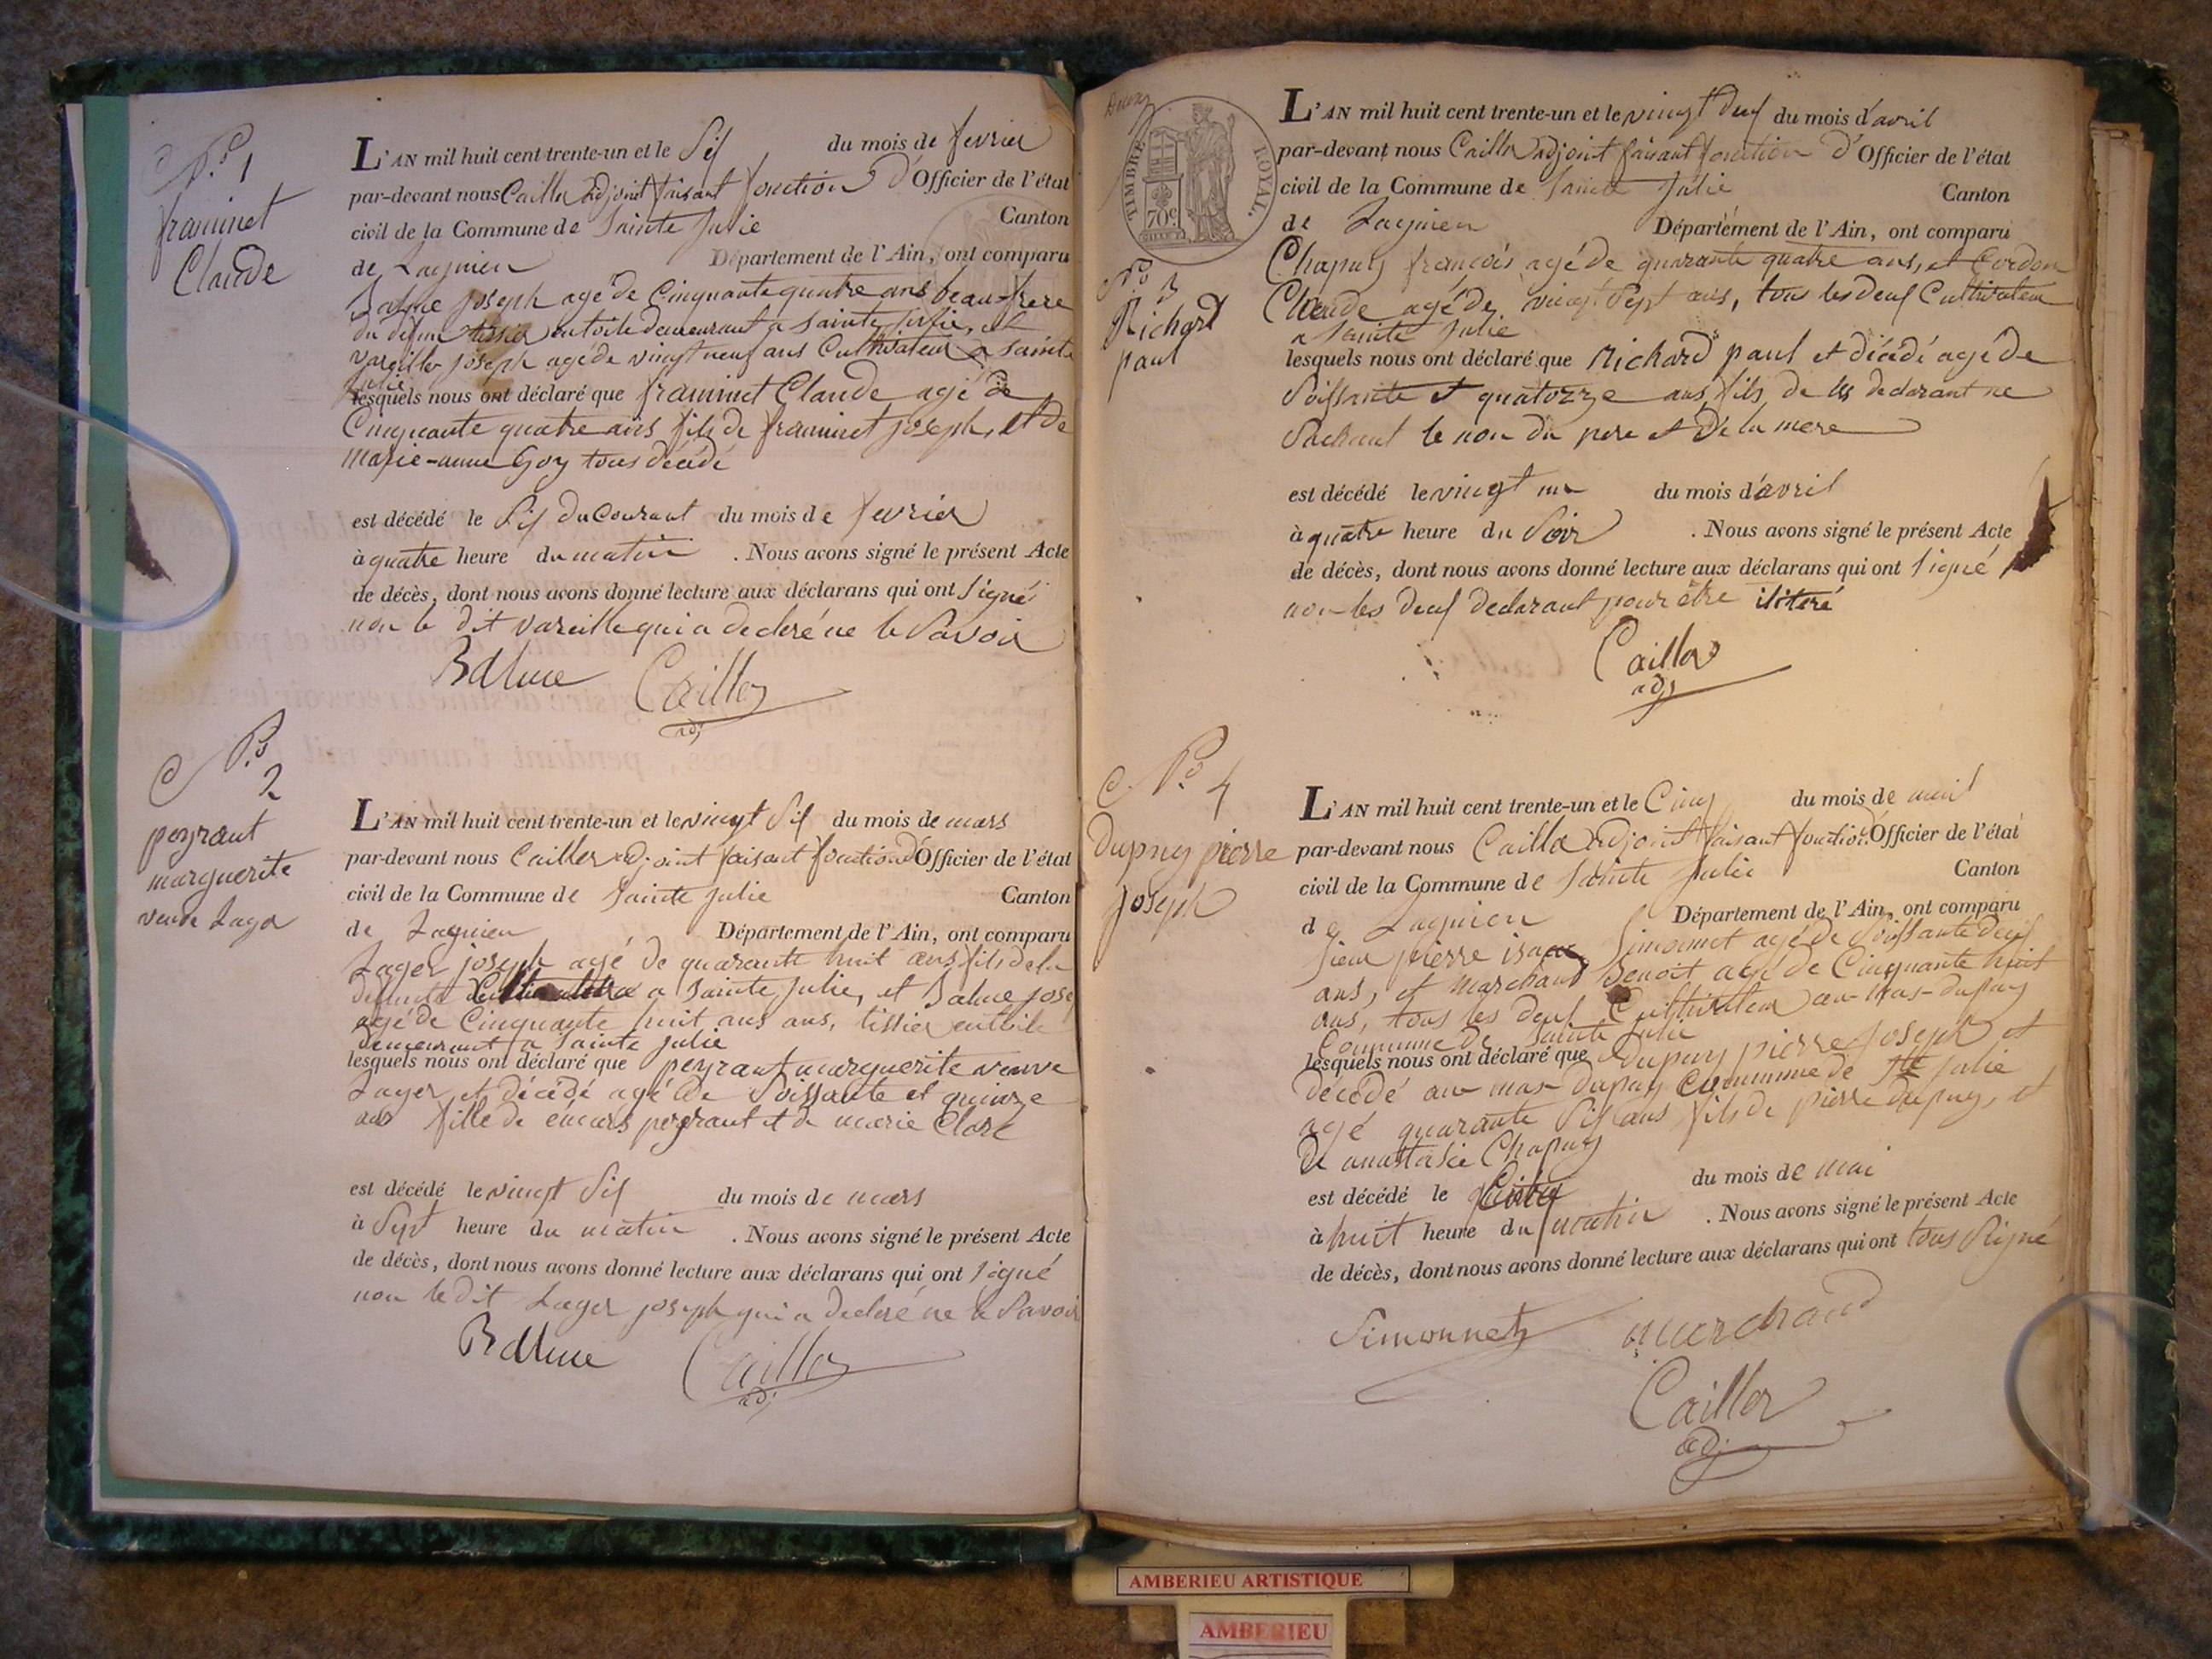 N.o 1
framinet
Claude
L'AN mil huit cent trente-un et le Six du mois de fevrier
par-devant nous Cailler adjoint faisant fonction d'Officier de l'état
civil de la Commune de Sainte Julie Canton
de Lagnieu Département de l'Ain, ont comparu
Balme joseph agé de Cinquante quatre ans beau-frere
du defunt tissier en toile demeurant a Sainte Julie, et
vareille joseph agé de vingt neuf ans Cultivateur a Sainte
Julie
lesquels nous ont déclaré que framinet Claude agé de
Cinquante quatre ans fils de framinet joseph, et de
marie-anne Goy tous décédé
est décédé le Six du Courant du mois de fevrier
à quatre heure du matin . Nous avons signé le présent Acte
de décès, dont nous avons donné lecture aux déclarans qui ont signé
non le dit vareille qui a declaré ne le Savoir
Balme Cailler
adj
N.o 2
peyrant
marguerite
veuve Lager
L'AN mil huit cent trente-un et le vingt Six du mois de mars
par-devant nous Cailler adjoint faisant fonction d'Officier de l'état
civil de la Commune de Sainte Julie Canton
de Lagnieu Département de l'Ain, ont comparu
Lager joseph agé de quarante huit ans fils de la
defunte a Sainte Julie, et Balme jose
agé de Cinquante huit ans ans, tissier en toile
demeurant a Sainte Julie
lesquels nous ont déclaré que peyrant marguerite veuve
Lager et décédé agé de Soissante et quinze
ans fille de peyrant et de marie Clare
est décédé le vingt Six du mois de mars
à Sept heure du matin . Nous avons signé le présent Acte
de décès, dont nous avons donné lecture aux déclarans qui ont signé
non le dit Lager joseph qui a declaré ne le Savoir
Balme Cailler
adj
TIMBRE ROYAL.
70c
N.o 3
Richard
paul
L'AN mil huit cent trente-un et le vingt deux du mois d'avril
par-devant nous Cailler adjoint faisant fonction d'Officier de l'état
civil de la Commune de Sainte Julie Canton
de Lagnieu Département de l'Ain, ont comparu
Chapuy françois agé de quarante quatre ans, et Cordon
Claude agé de vingt Sept ans, tous les deux Cultivateur
a Sainte Julie
lesquels nous ont déclaré que Richard paul et décédé agé de
Soissante et quatorze ans, fils de les declarant ne
Sachant le non du pere et de la mere
est décédé le vingt un du mois d'avril
à quatre heure du Soir . Nous avons signé le présent Acte
de décès, dont nous avons donné lecture aux déclarans qui ont signé
non les deux declarant pour être iliteré
Cailler
adj
N.o 4
Dupuy pierre
joseph
L'AN mil huit cent trente-un et le Cinq du mois de mai
par-devant nous Cailler adjoint faisant fonction d'Officier de l'état
civil de la Commune de Sainte Julie Canton
de Lagnieu Département de l'Ain, ont comparu
Sieur pierre isaac Simonnet agé de Soissante deux
ans, et marchand Benoit agé de Cinquante huit
ans, tous les deux Cultivateur au-mas-dupuy
Commune de Sainte Julie
lesquels nous ont déclaré que dupuy pierre joseph et
décédé au mas dupuy Commune de Ste Julie
agé quarante Six ans fils de pierre dupuy, et
de anastasie Chapuy
est décédé le Cinq du mois de mai
à huit heure du matin . Nous avons signé le présent Acte
de décès, dont nous avons donné lecture aux déclarans qui ont tous Signé
Simonnet marchand
Cailler
adj
AMBERIEU ARTISTIQUE
AMBERIEU